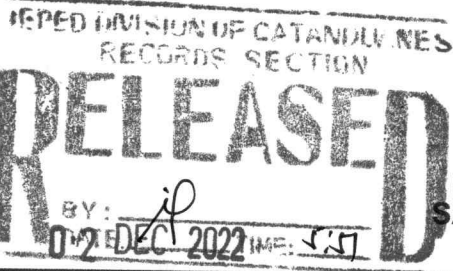 DEPED DIVISION OF CATANDUANES
RECORDS SECTION
RELEASED
BY:
DATE 02 DEC 2022 TIME: 5:57
S